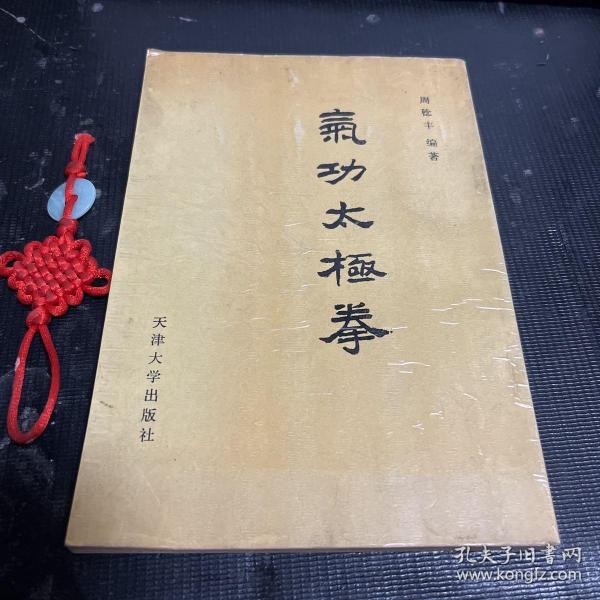 周稔丰 编著
氣功太極拳
天津大学出版社
孔夫子旧书网
www.kongfz.com